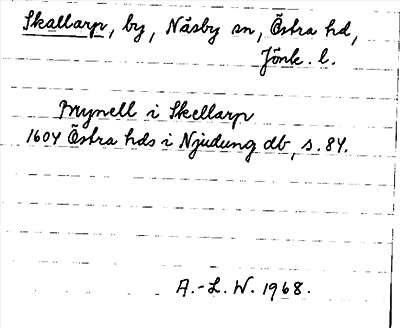 Skallarp, by, Näsby sn, Östra hd,
Jönk. l.
Mynell i Skellarp
1604 Östra hds i Njudung db, s. 84.
A.-L. W. 1968.